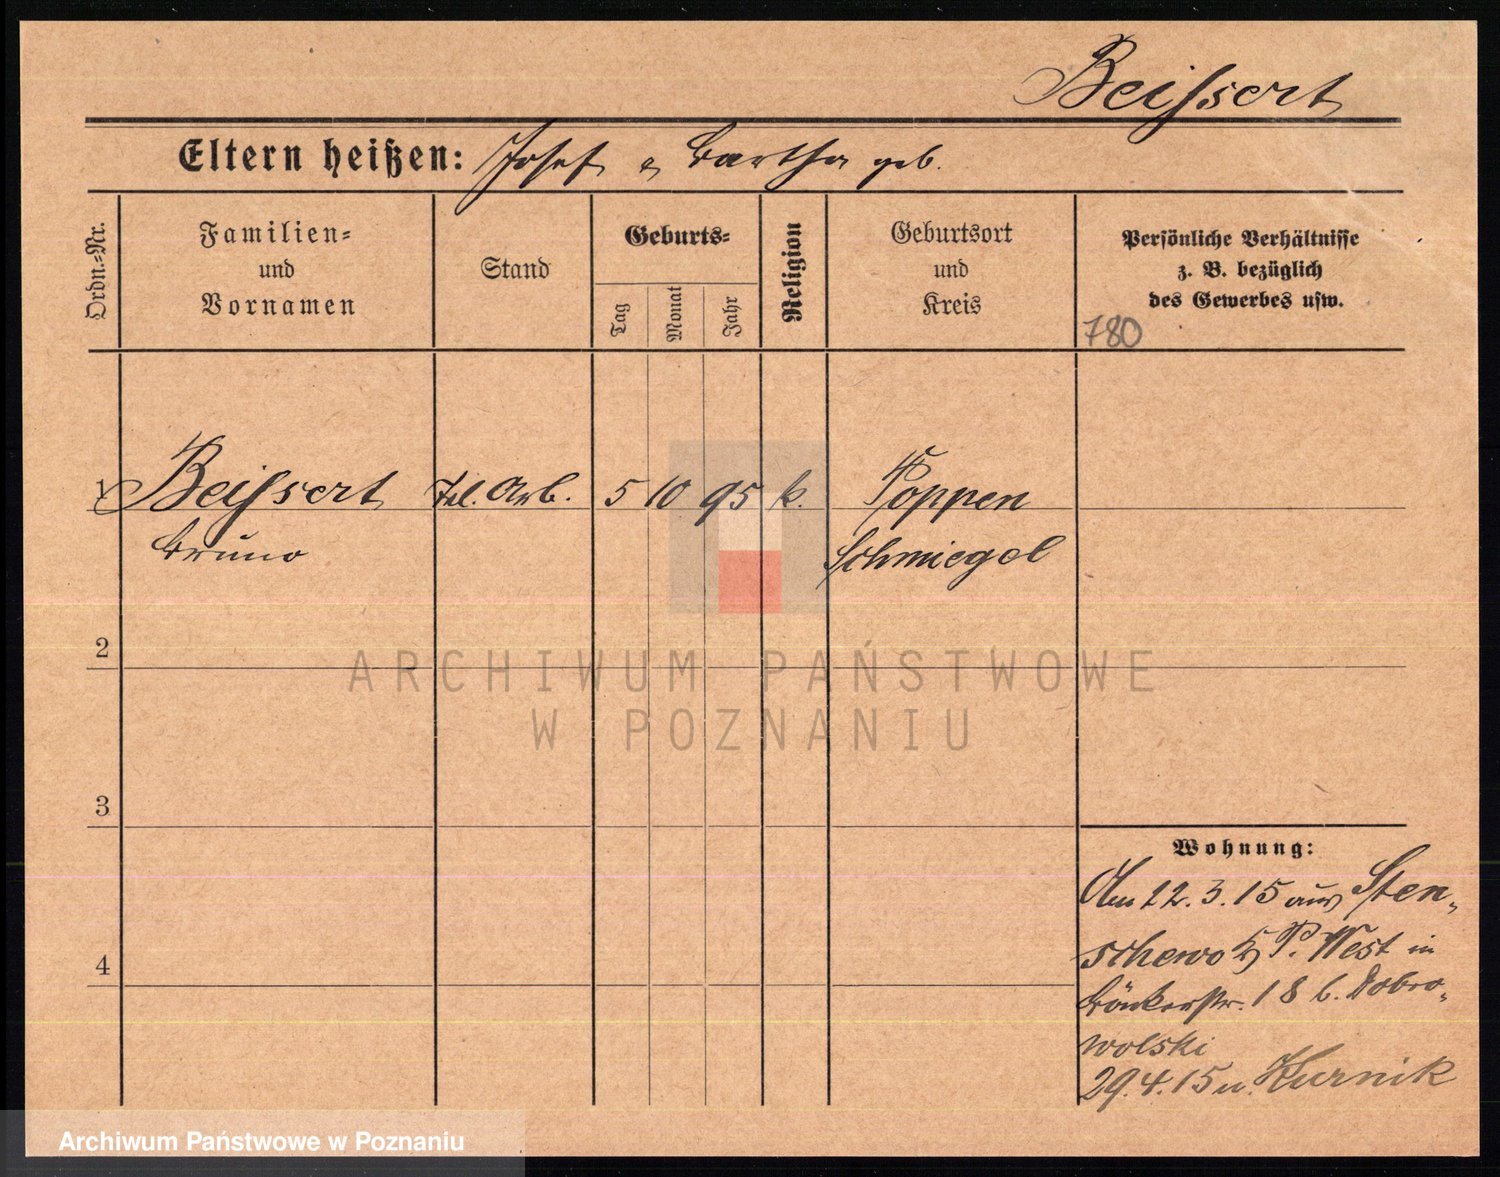 Beissert
Eltern heißen: Josef u Bertha geb.
Ordn.-Nr.
Familien-
und
Vornamen
Stand
Geburts-
Tag
Monat
Jahr
Religion
Geburtsort
und
Kreis
Persönliche Verhältnisse
z. B. bezüglich
des Gewerbes usw.
780
1 Beissert Tel. Arb. 5 10 95 k. Poppen
Bruno Schmiegel
2
ARCHIWUM PAŃSTWOWE
W POZNANIU
3
Wohnung:
Am 12.3.15 aus Sten-
schewo Kr. P. West in
Bäckerstr. 18 b. Dobro-
wolski
4
29.4.15 n. Kurnik
Archiwum Państwowe w Poznaniu